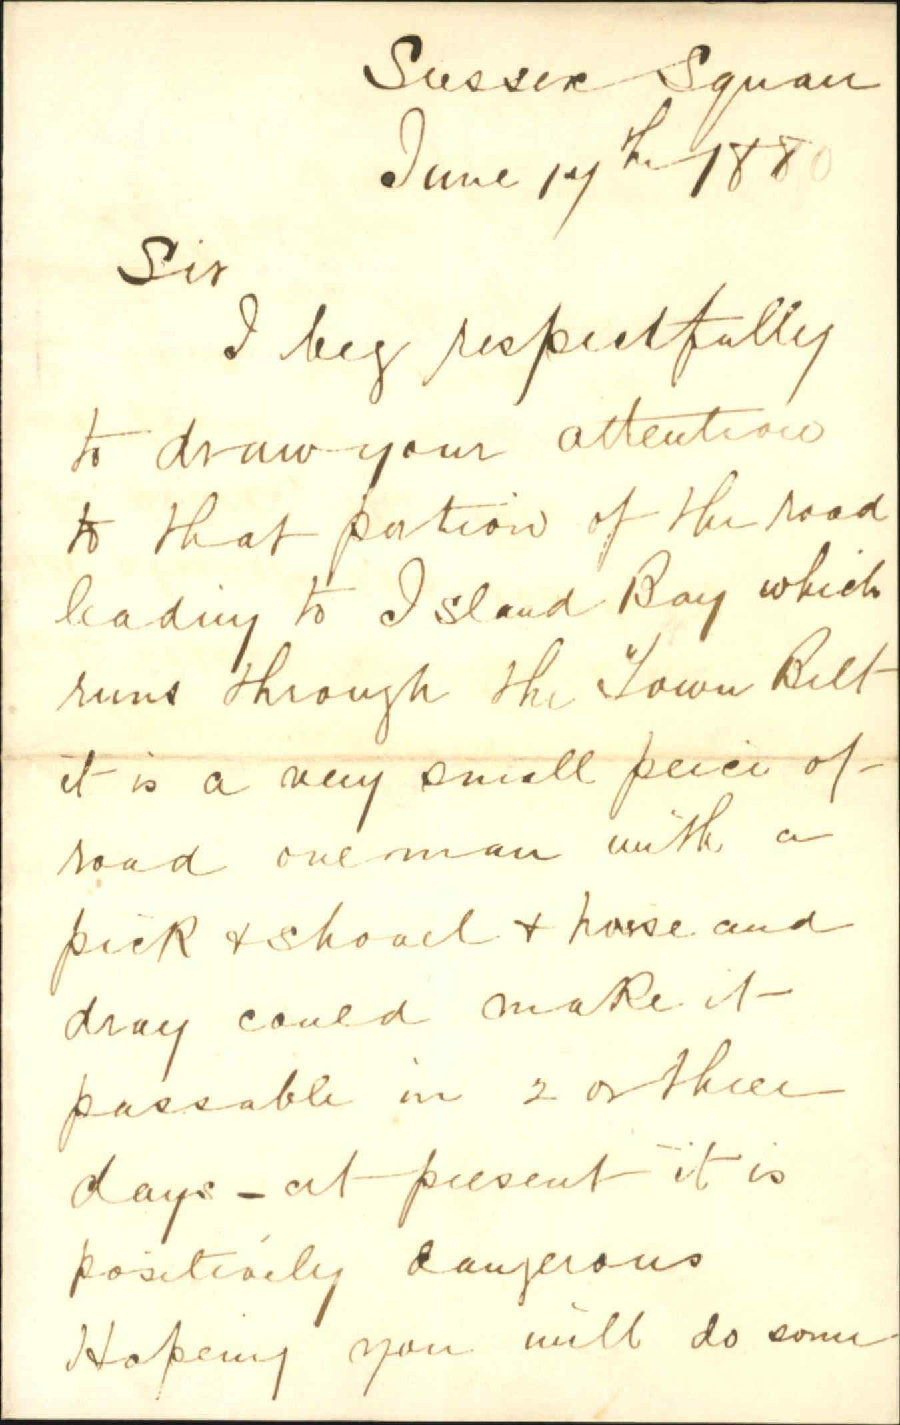 Sussex Square
June 14th 1880
Sir
I beg respectfully
to draw your attention
to that portion of the road
leading to Island Bay which
runs through the Town Belt
it is a very small peice of
road one man with a
pick + shovel + horse and
dray could make it
passable in 2 or three
days - at present it is
positively dangerous
Hopeing you will do some